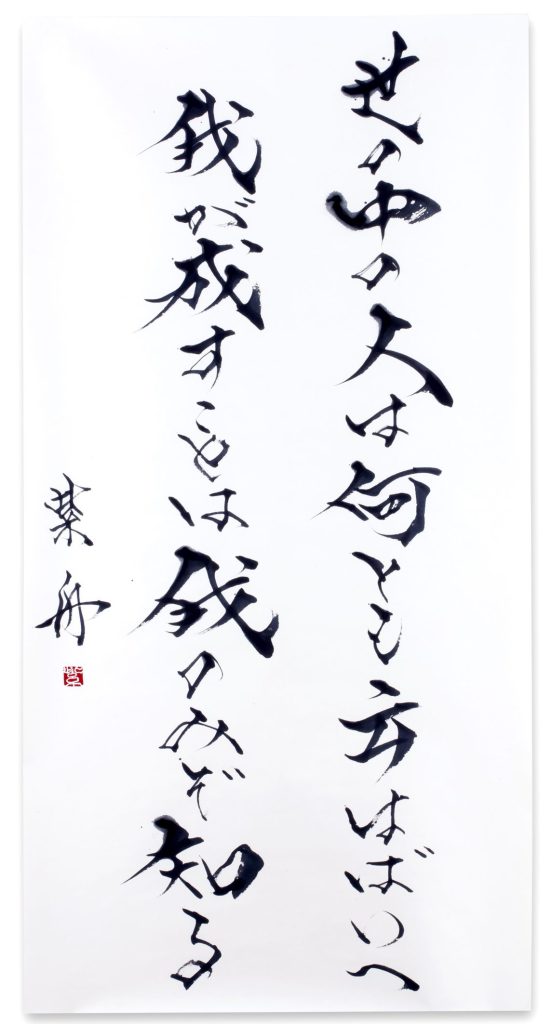 世の中の人は何とも云はばいへ
我が成すことは我のみぞ知る
紫舟